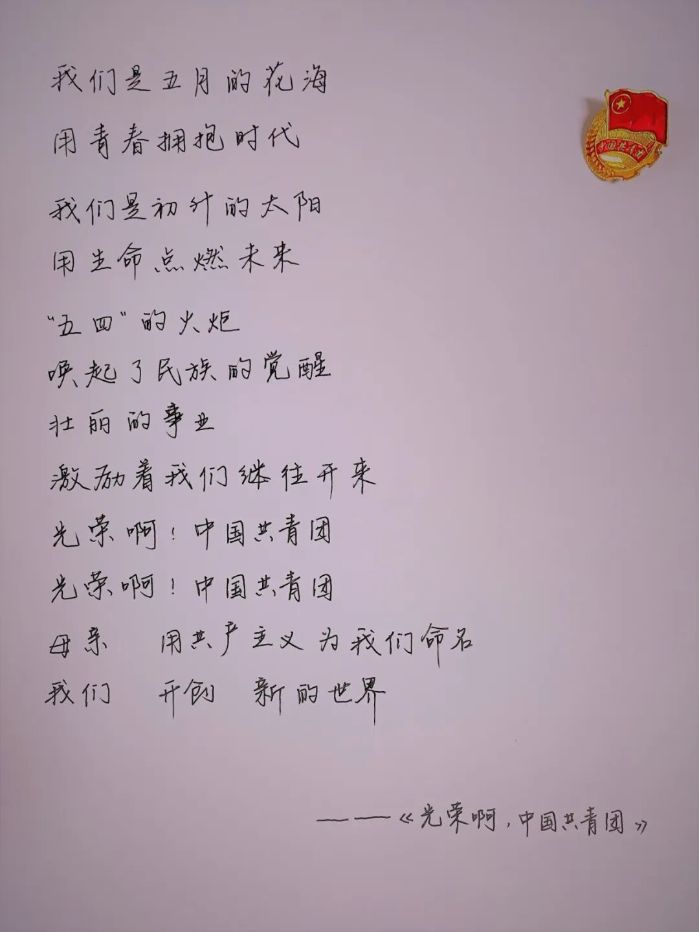 我们是五月的花海
用青春拥抱时代
我们是初升的太阳
用生命点燃未来
“五四”的火炬
唤起了民族的觉醒
壮丽的事业
激励着我们继往开来
光荣啊！中国共青团
光荣啊！中国共青团
母亲 用共产主义为我们命名
我们 开创 新的世界
——《光荣啊，中国共青团》
中国共青团